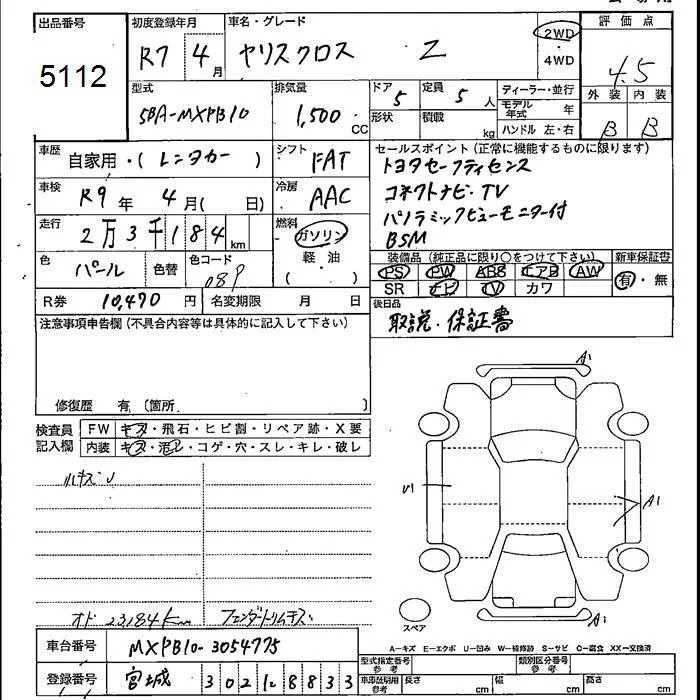 出品番号
5112
初度登録年月
R7 4月
車名・グレード
ヤリスクロス Z
2WD
4WD
評価点
4.5
外装 内装
B B
型式
5BA-MXPB10
排気量
1,500 CC
ドア 5
形状
定員 5 人
積載 kg
ディーラー・並行
モデル年式 年
ハンドル 左・右
車歴
自家用・(レンタカー)
シフト
FAT
セールスポイント (正常に機能するものに限ります)
トヨタセーフティセンス
コネクトナビ・TV
パノラミックビューモニター付
BSM
車検
R9年 4月( 日)
冷房
AAC
走行
2万3千184 km
燃料
ガソリン
軽・油
( )
色
パール
色替
色コード
089
装備品 (純正品に限り○をつけて下さい)
PS PW ABS エアB AW
SR ナビ TV カワ
新車保証書
有・無
R券 10,470 円
名変期限 月 日
後日品
取説・保証書
注意事項申告欄 (不具合内容等は具体的に記入して下さい)
修復歴 有 〔箇所 〕
検査員記入欄
FW キズ・飛石・ヒビ割・リペア跡・X要
内装 キズ・汚レ・コゲ・穴・スレ・キレ・破レ
オド 23,184km
フェンダートリムキズ
A1
A1
A1
スペア
A-キズ E-エクボ U-凹み W-補修跡 S-サビ C-腐食 XX-交換済
車台番号
MXPB10-3054775
登録番号
宮城 302 1 8833
型式指定番号 参考
類別区分番号 参考
車庫証明用 参考
長さ cm
幅 cm
高さ cm